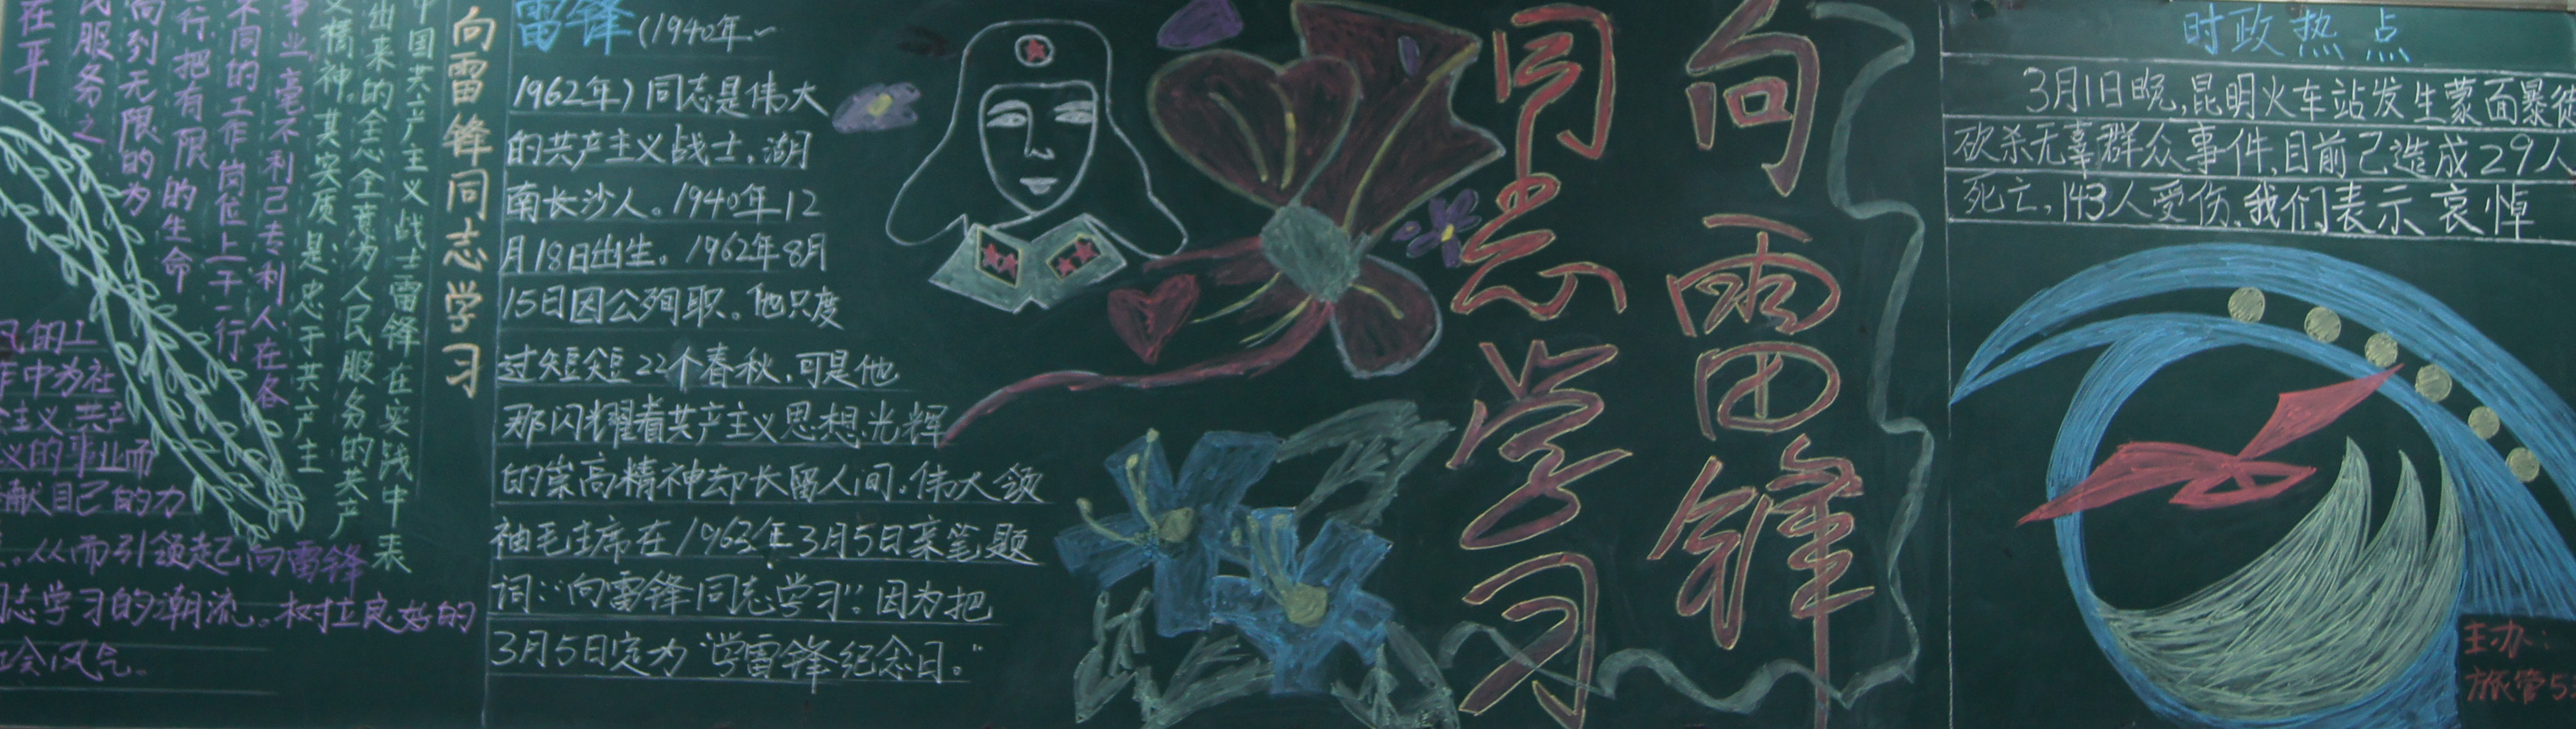 向雷锋
同志学习
时政热点
3月1日晚,昆明火车站发生蒙面暴徒
砍杀无辜群众事件,目前己造成29人
死亡,143人受伤,我们表示哀悼
主办:
旅管5
雷锋(1940年~
1962年)同志是伟大
的共产主义战士,湖
南长沙人。1940年12
月18日出生。1962年8月
15日因公殉职。他只度
过短短22个春秋,可是他
那闪耀着共产主义思想光辉
的崇高精神却长留人间。伟大领
袖毛主席在1963年3月5日亲笔题
词:“向雷锋同志学习”。因为把
3月5日定为“学雷锋纪念日。”
向雷锋同志学习
中国共产主义战士雷锋在实践中表
出来的全心全意为人民服务的共产
义精神。其实质是忠于共产主
事业,毫不利己专利人,在各
不同的工作岗位上干一行
行,把有限的生命
到无限的为
民服务之
在平
凡的工
作中为社
会主义,共产
义的事业而
献自己的力
。从而引领起向雷锋
同志学习的潮流。树立良好的
社会风气。